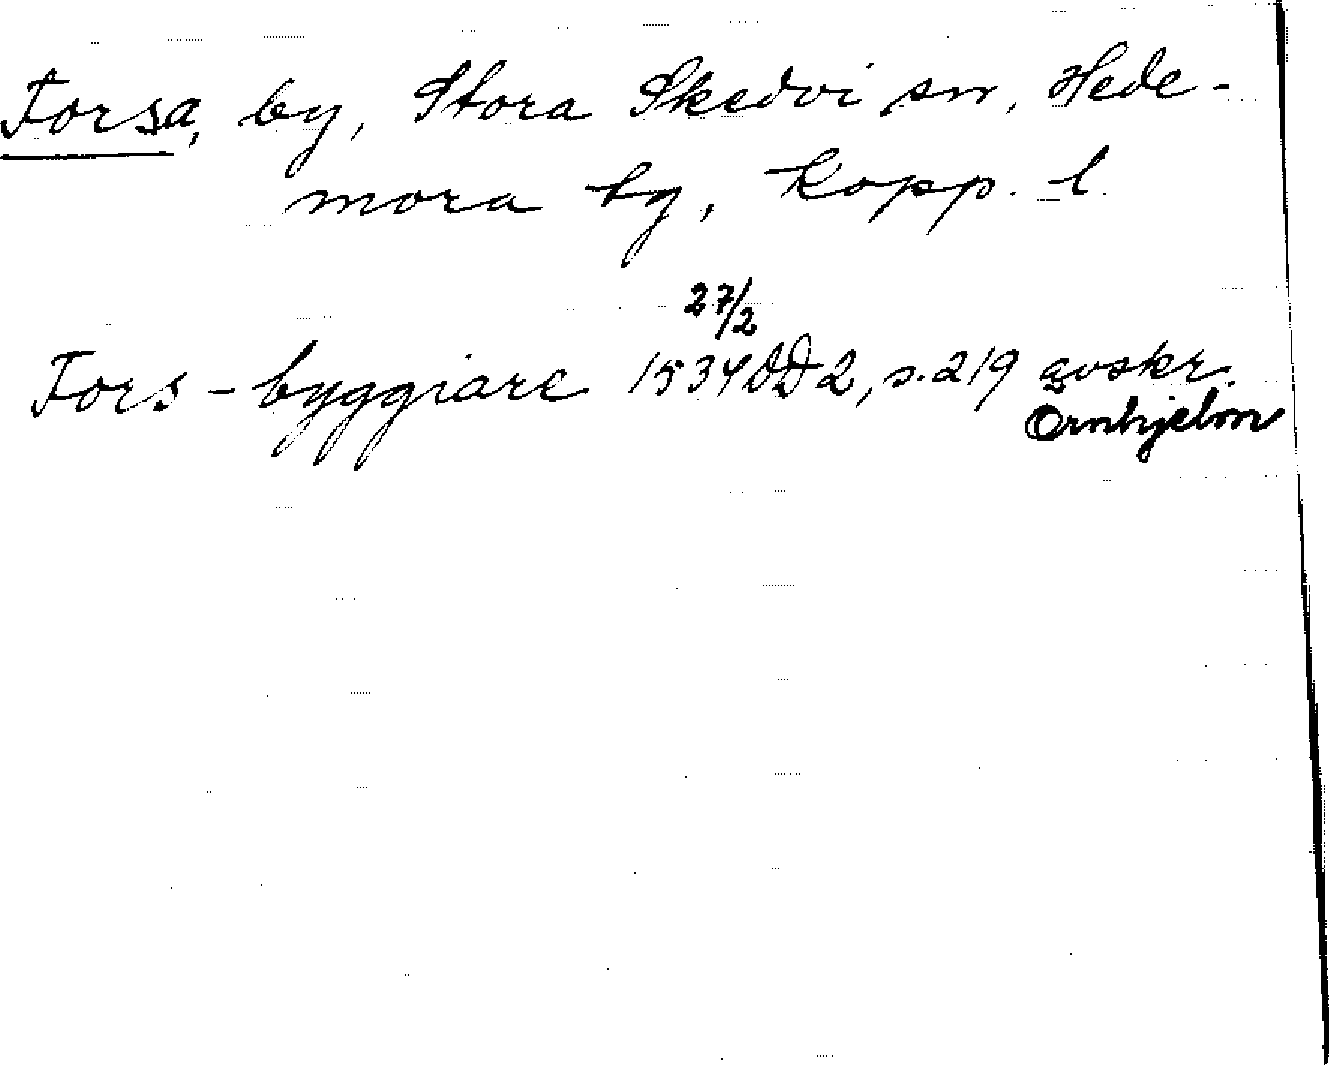 Forsa, by, Stora Skedvi sn, Hede-
mora tg, Kopp. l.
27/2
Fors-byggiare 1534 DD 2, s. 219 avskr.
Örnhjelm